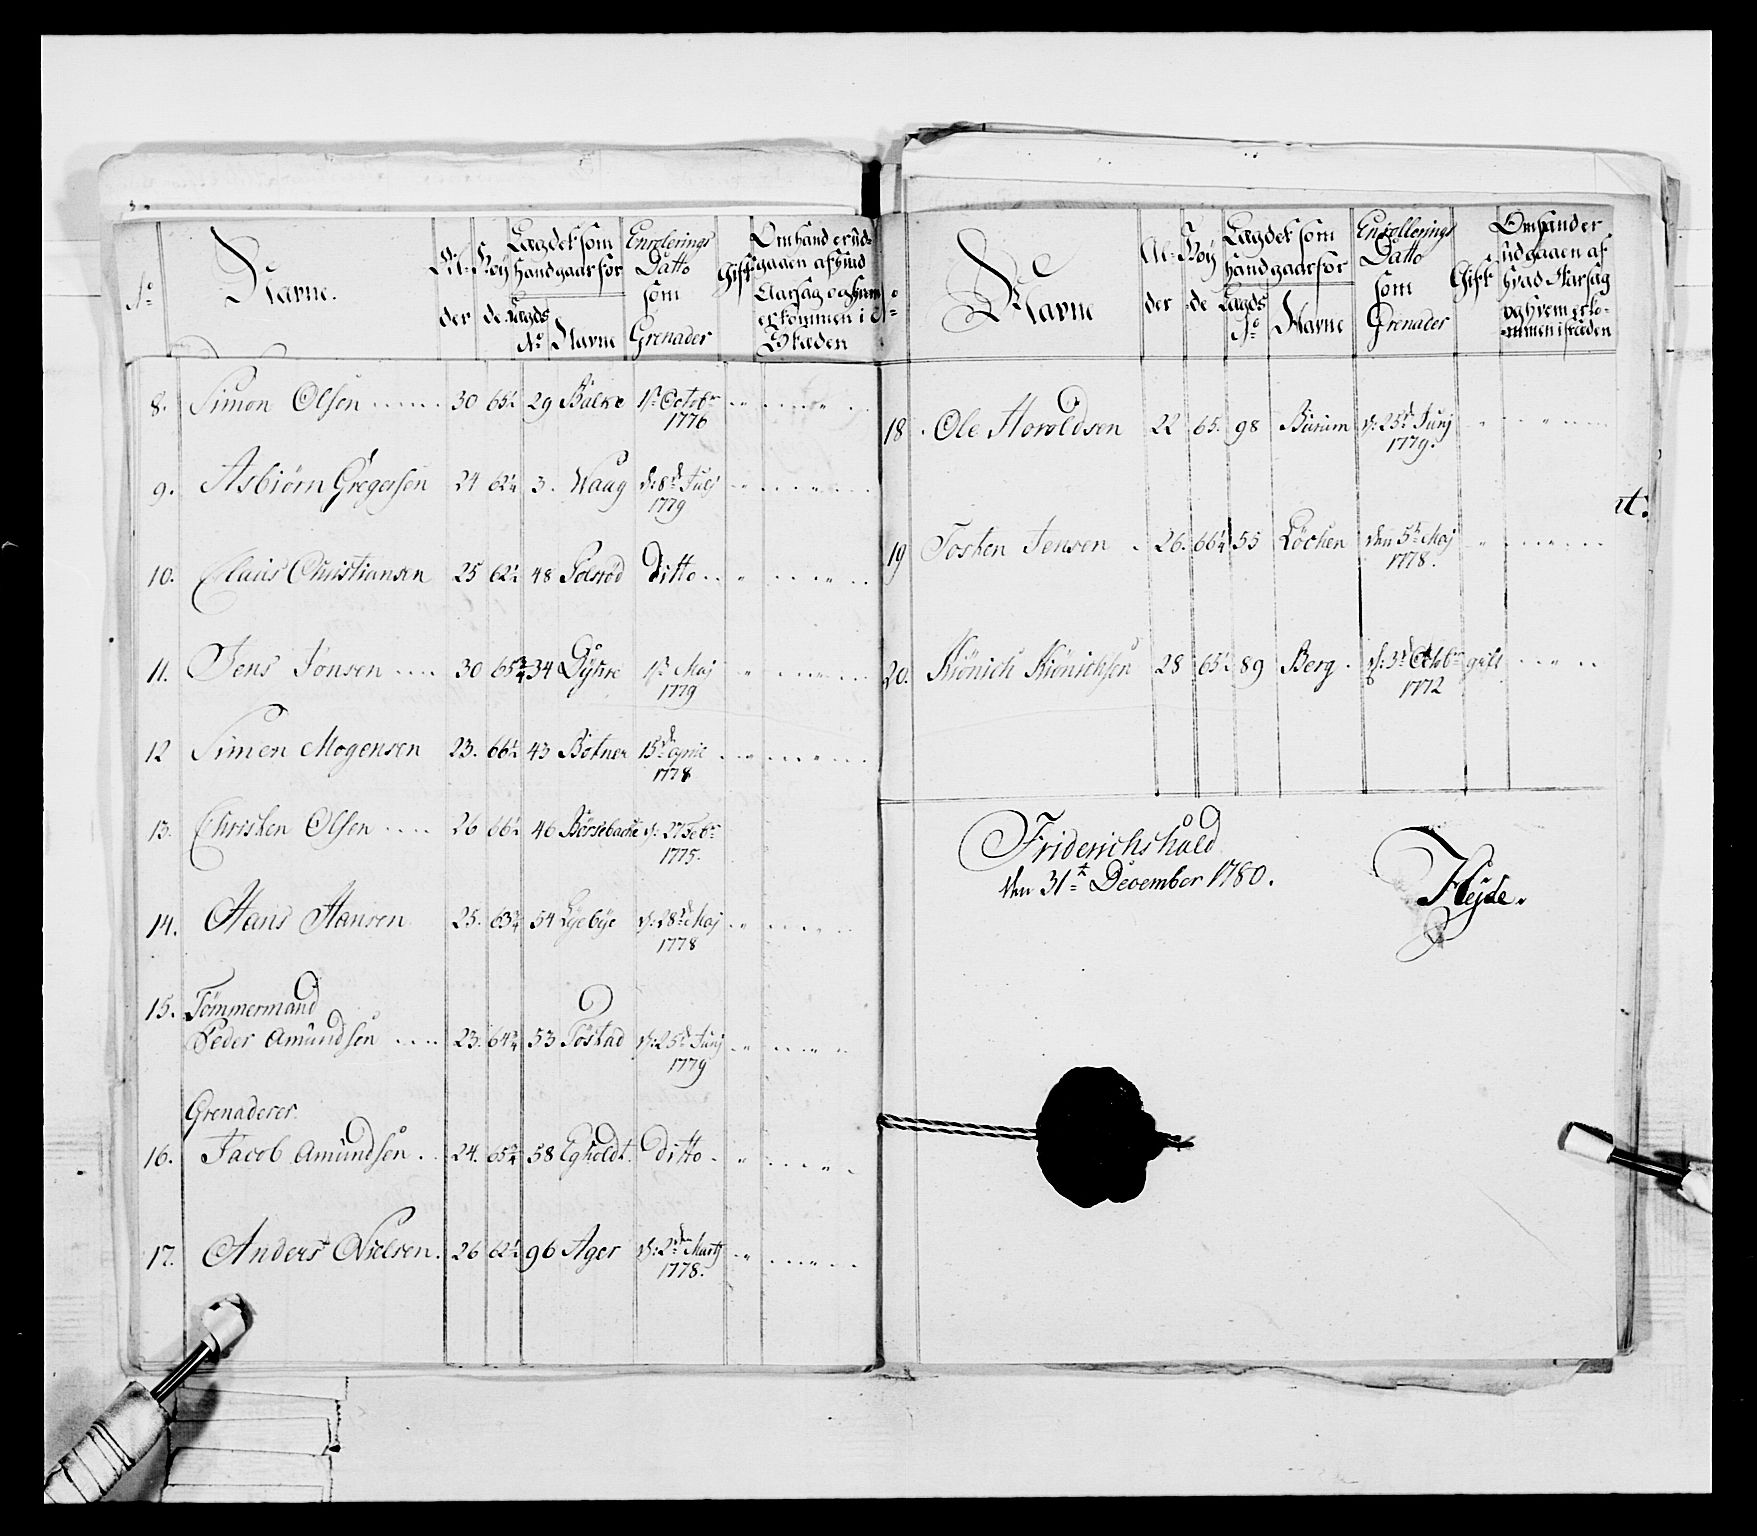 No
Navne.
Al-
der
Høy
de
Lagdet som
Hand gaar for
Lagds
No
Navne
Enrolerings
Datto
som
Grenader
Gift
Om hand er ud-
gaaen af hvad
Aarsag og hvem
er kommen i
Stæden
8. Simon Olsen ...... 30 65½ 29 Balke 1ste Octobr
1776
9. Asbiörn Gregersen 24 62¼ 3. Haug d: 8de Julj
1779
10. Claus Christiansen 25 62½ 48 Solsröd Ditto
11. Jens Jonsen .... 30 65¾ 34 Dyhre 1ste Maj
1779
12 Simen Mogensen 23. 66½ 43 Botner 15de April
1778
13. Christen Olsen .... 26 66½ 46 Börsebache d: 27 Febr
1775.
14. Hans Hansen 25. 63¼ 54 Lyebye d: 28de Maj
1778
15. Tömmermand
Peder Amundsen .... 23. 64¾ 53 Töstad d: 25de Junj
1779
Grenaderer
16. Jacob Amundsen .. 24. 65¾ 58 Egholdt Ditto
17. Anders Nielsen. 26 62½ 96 Ager d: 2den Martj
1778.
No
Navne
Al-
der
Høy
de
Lagdet som
Hand gaar for
Lagds
No
Navne
Enrollerings
Datto
som
Grenader
Gift
Om hand er
udgaaen af
hvad Aarsag
og hvem er ko-
mmen i stæden
18 Ole Haroldsen 22 65. 98 Burum d: 25de Junj
1779.
19 Tosten Jensen . 26. 66¼ 55 Löchen den 5te Maj
1778.
20. Kiönich Kiönichsen 28 65½ 89 Berg . d: 3de Octobr gift
1772
Friderichshald
den 31te December 1780.
Hejde.
it.